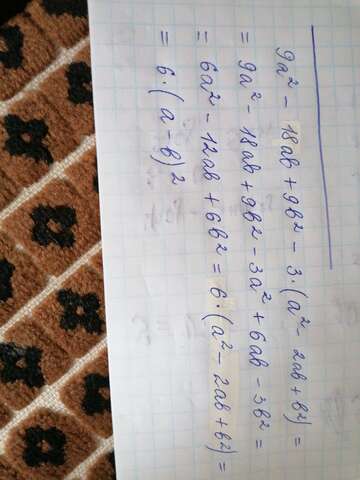 9a² - 18ab + 9b² - 3·(a² - 2ab + b²) =
= 9a² - 18ab + 9b² - 3a² + 6ab - 3b² =
= 6a² - 12ab + 6b² = 6·(a² - 2ab + b²) =
= 6·(a - b)²